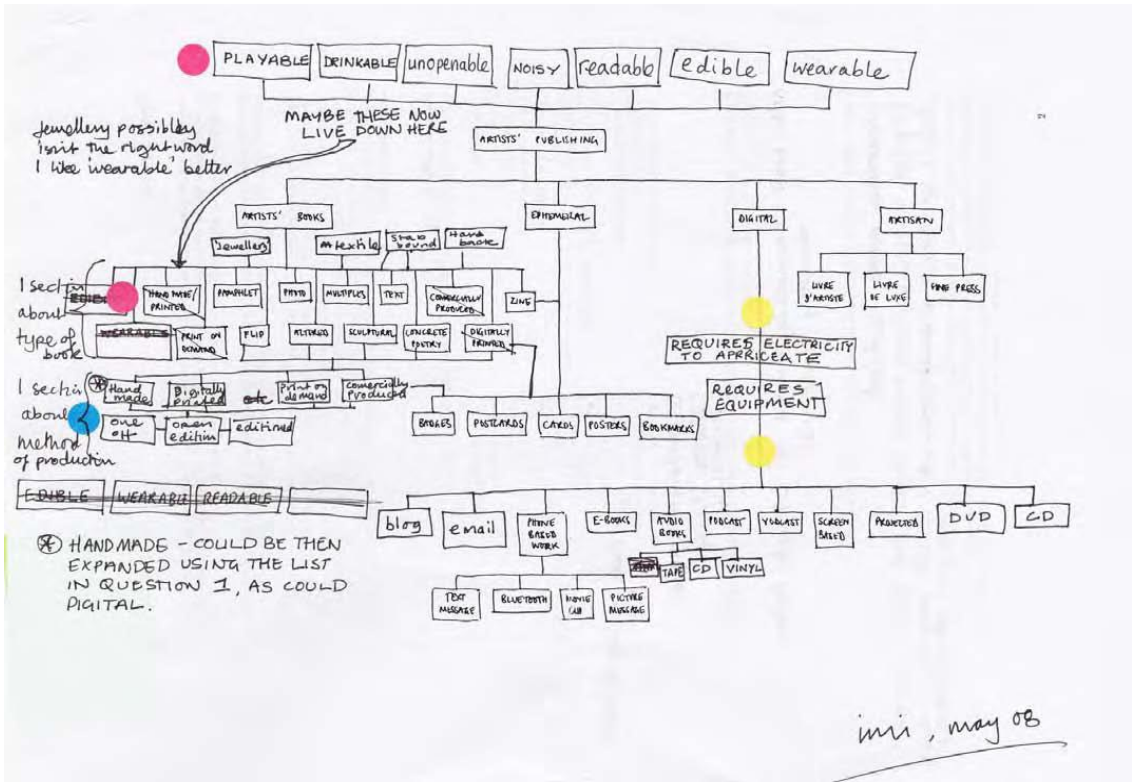 PLAYABLE DRINKABLE unopenable NOISY readable edible wearable
MAYBE THESE NOW
LIVE DOWN HERE
Jewellery possibley
isn't the right word
I like 'wearable' better
ARTISTS' PUBLISHING
ARTISTS' BOOKS EPHEMERAL DIGITAL ARTISAN
Jewellery textile Stab bound Hand
LIVRE D'ARTISTE LIVRE DE LUXE FINE PRESS
1 section
about
type of
book
EDIBLE HAND MADE/ PRINTED PAMPHLET PHOTO MULTIPLES TEXT COMERCIALLY PRODUCED ZINE
WEARABLE PRINT ON DEMAND FLIP ALTERED SCULPTURAL CONCRETE POETRY DIGITALLY PRINTED
REQUIRES ELECTRICITY
TO APPRICEATE
REQUIRES
EQUIPMENT
1 section
about
method
of production
Hand made Digitally printed etc Print on demand Comercially Produced
one off open edition editioned
BADGES POSTCARDS CARDS POSTERS BOOKMARKS
EDIBLE WEARABLE READABLE
blog email PHONE BASED WORK E-BOOKS AUDIO BOOKS PODCAST VODCAST SCREEN BASED PROJECTED DVD CD
TAPE CD VINYL
TEXT MESSAGE BLUETOOTH MOVIE PICTURE MESSAGE
HANDMADE - COULD BE THEN
EXPANDED USING THE LIST
IN QUESTION 1, AS COULD
DIGITAL.
imi, may 08